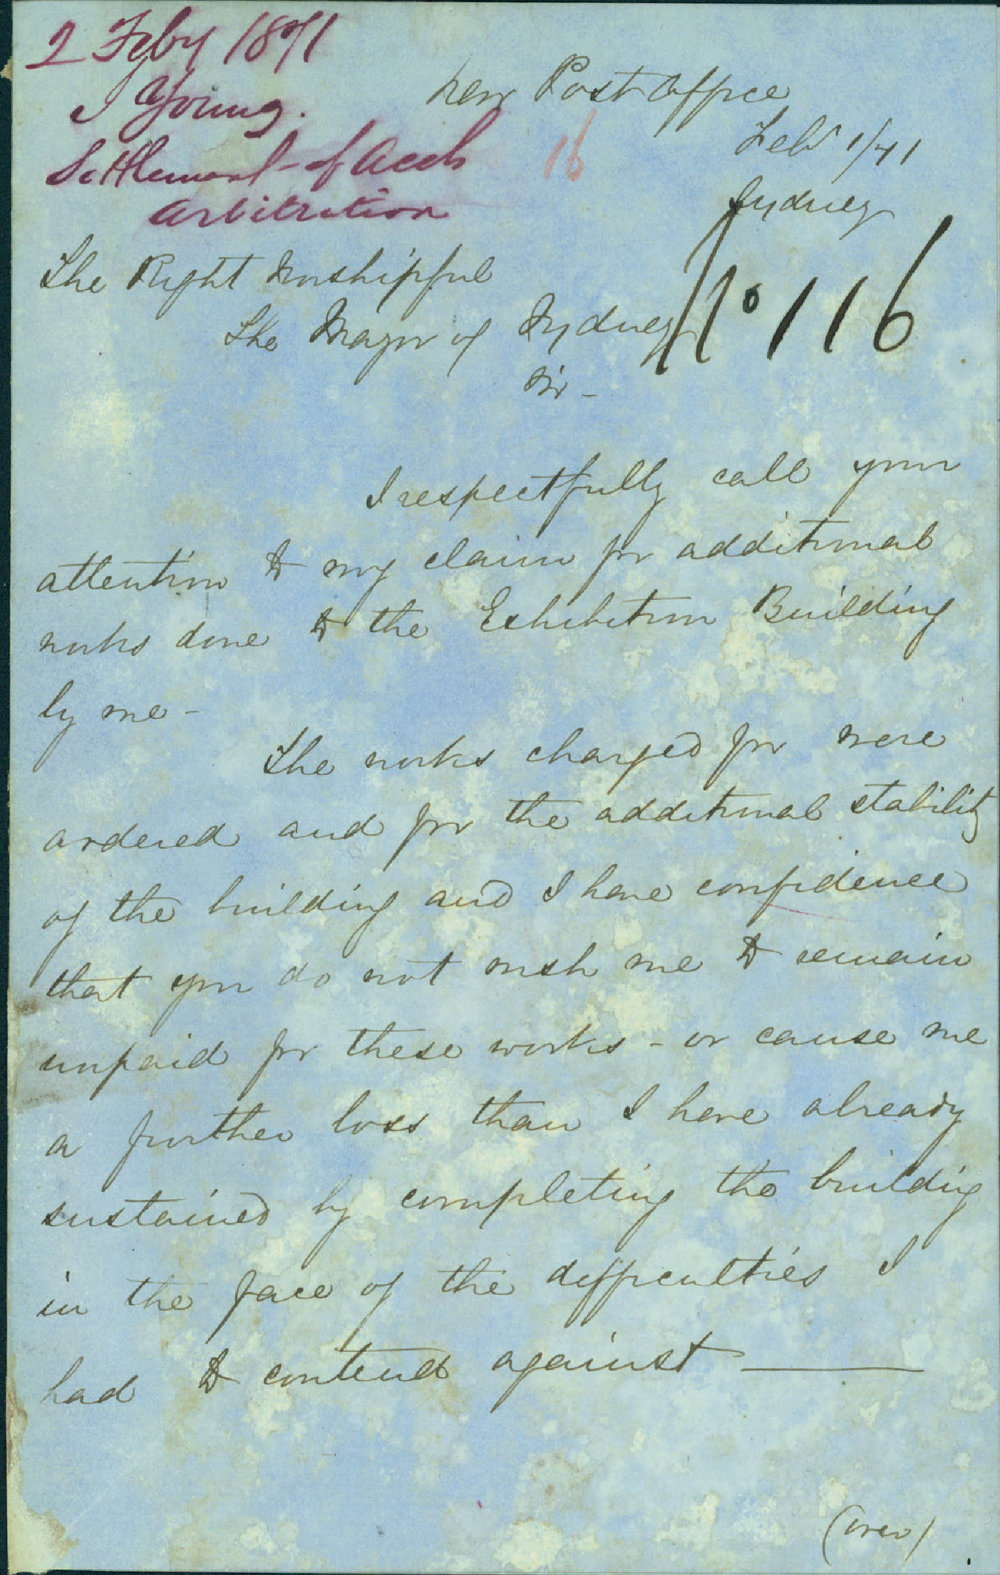 2 Feby 1871
J Young.
Settlement of Accts
Arbitration
16
New Post Office
Feb 1/71
Sydney
No 116
The Right Worshipful
The Mayor of Sydney
Sir -
I respectfully call your
attention to my claim for additional
works done to the Exhibition Building
by me -
The works charged for were
ordered and for the additional stability
of the building and I have confidence
that you do not wish me to remain
unpaid for these works - or cause me
a further loss than I have already
sustained by completing the building
in the face of the difficulties I
had to contend against ———
(over)